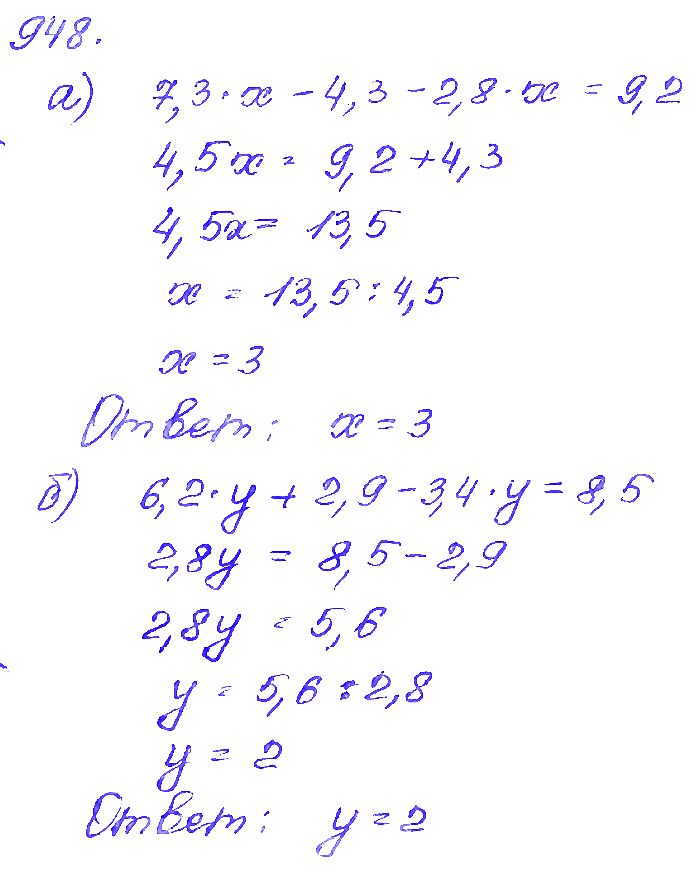 948.
а) 7,3·x - 4,3 - 2,8·x = 9,2
4,5x = 9,2 + 4,3
4,5x = 13,5
x = 13,5 : 4,5
x = 3
Ответ: x = 3
б) 6,2·y + 2,9 - 3,4·y = 8,5
2,8y = 8,5 - 2,9
2,8y = 5,6
y = 5,6 : 2,8
y = 2
Ответ: y = 2